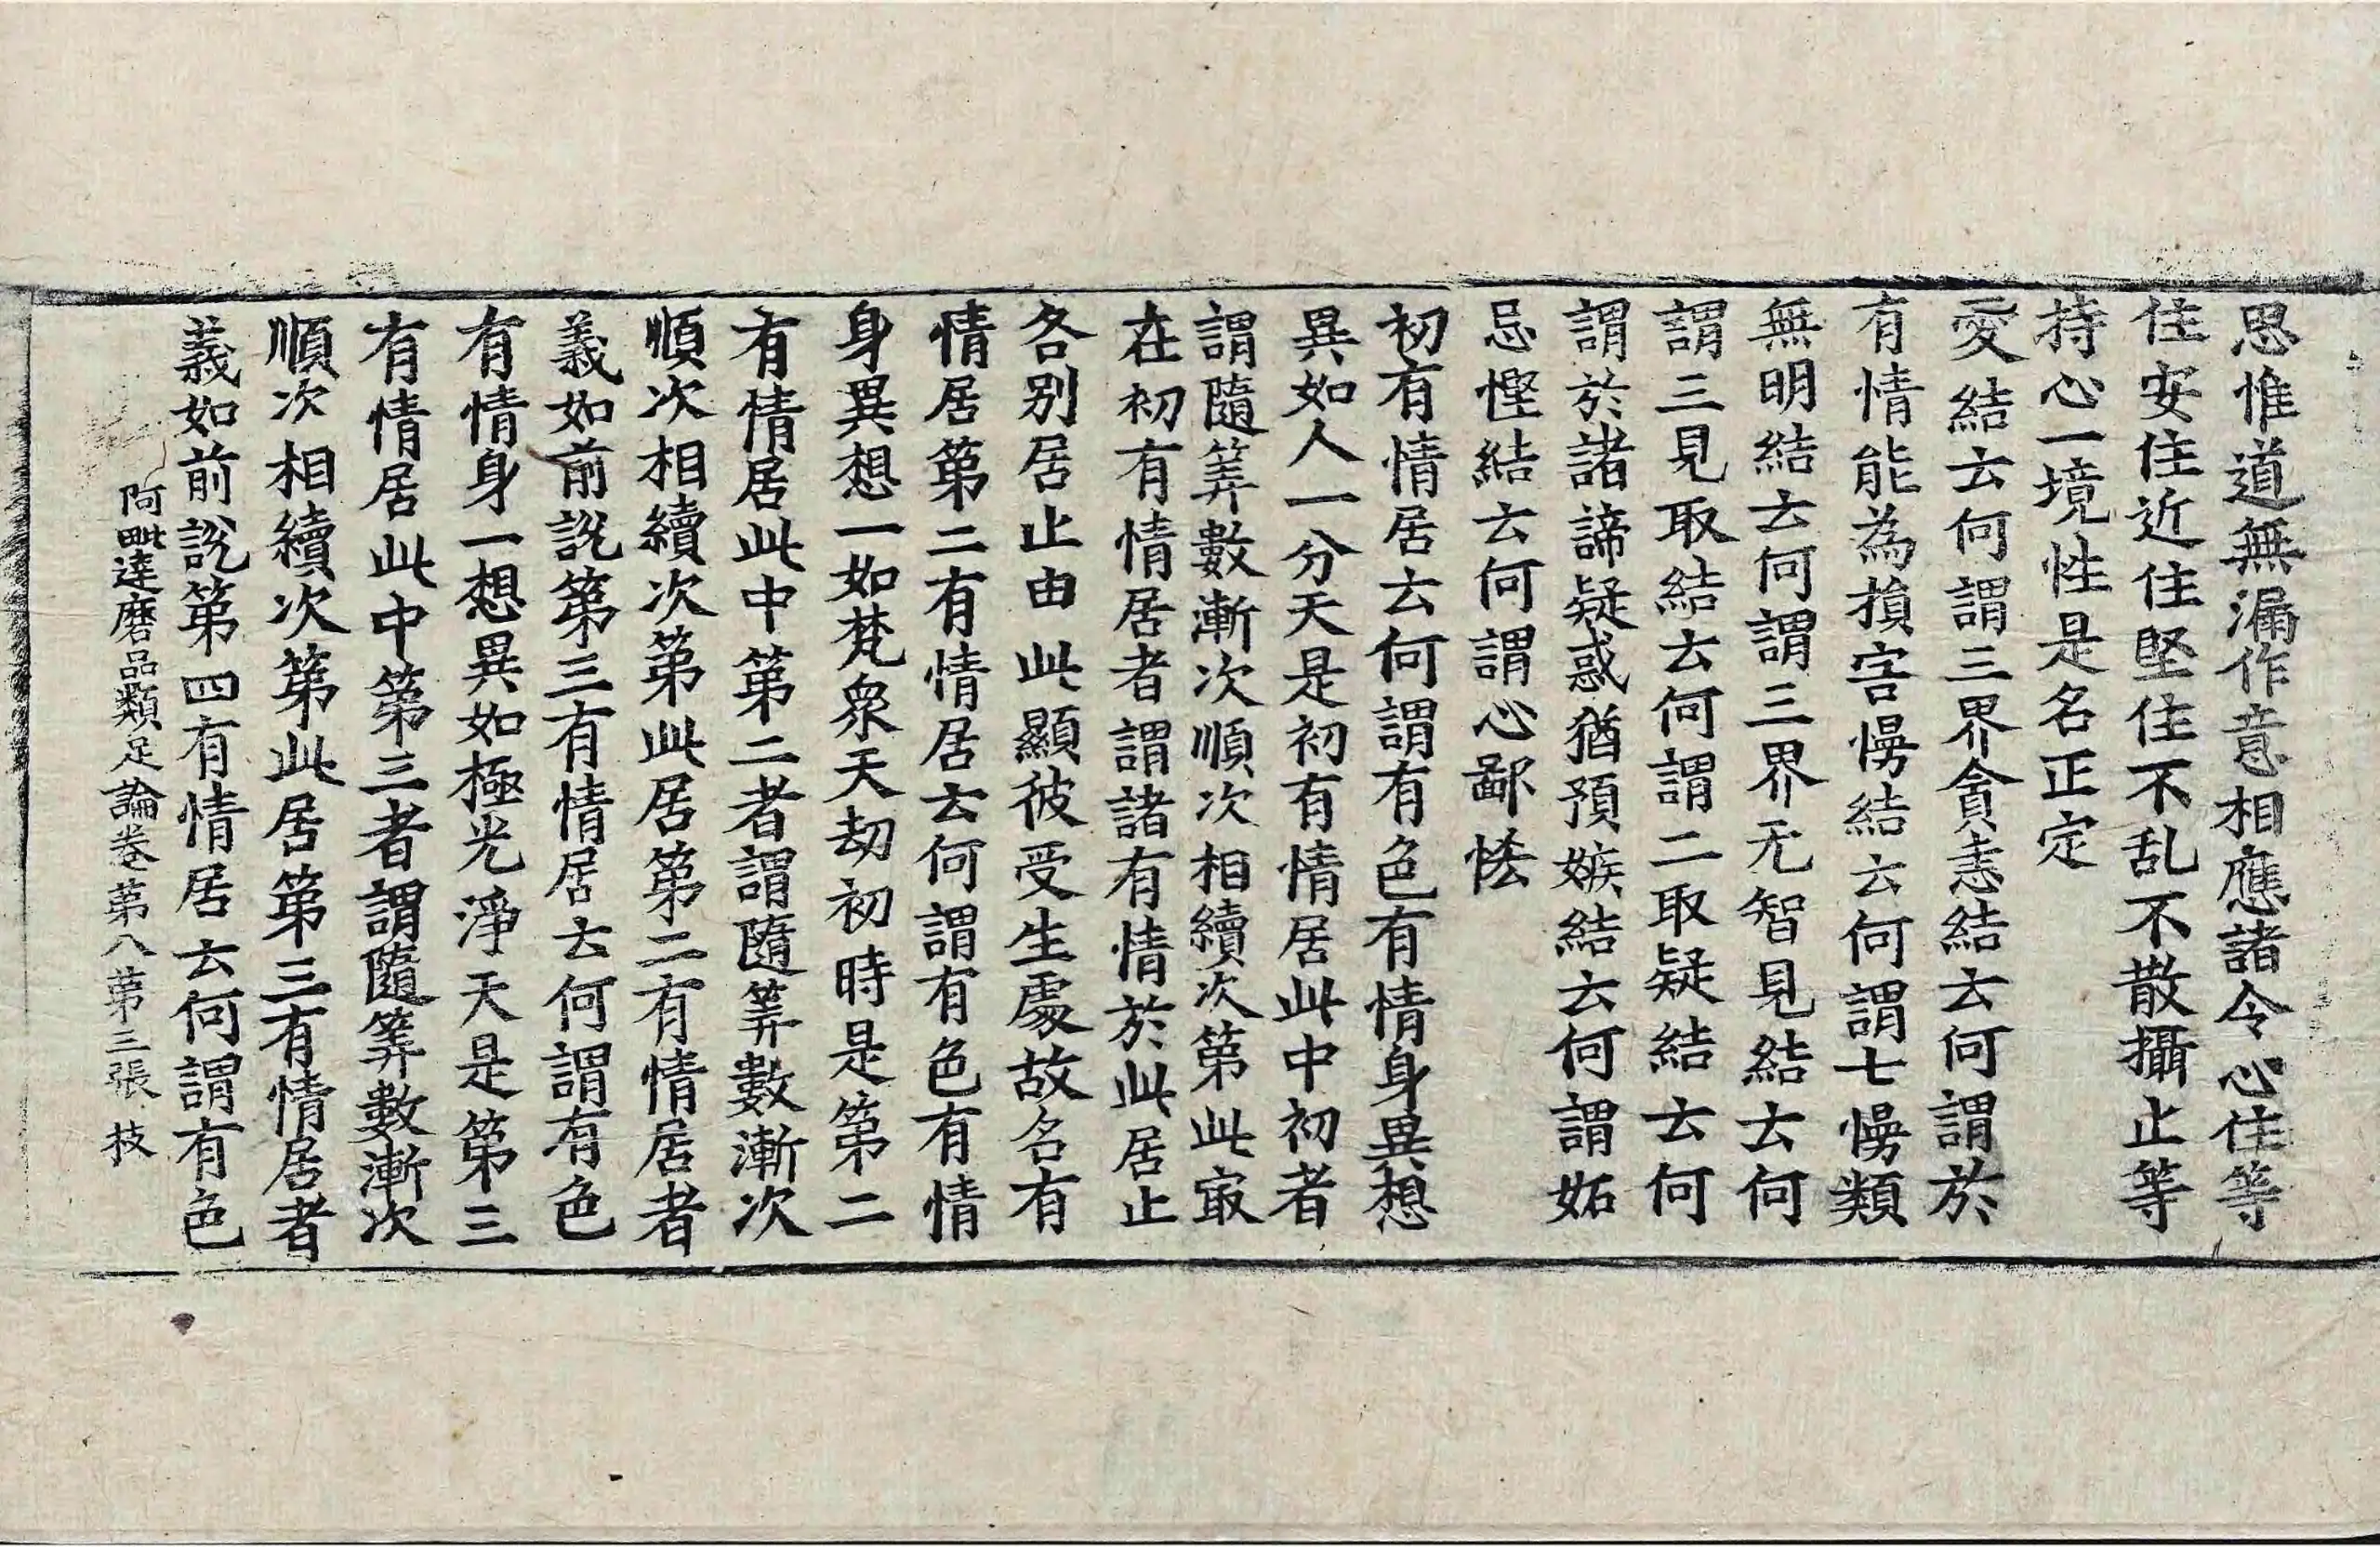 思惟道無漏作意相應諸令心住等
住安住近住堅住不乱不散攝止等
持心一境性是名正定
愛結云何謂三界貪恚結云何謂於
有情能為損害慢結云何謂七慢類
無明結云何謂三界无智見結云何
謂三見取結云何謂二取疑結云何
謂於諸諦疑惑猶預嫉結云何謂妬
忌慳結云何謂心鄙悋
初有情居云何謂有色有情身異想
異如人一分天是初有情居此中初者
謂隨筭數漸次順次相續次第此冣
在初有情居者謂諸有情於此居止
各別居止由此顯彼受生處故名有
情居第二有情居云何謂有色有情
身異想一如梵衆天劫初時是第二
有情居此中第二者謂隨筭數漸次
順次相續次第此居第二有情居者
義如前說第三有情居云何謂有色
有情身一想異如極光淨天是第三
有情居此中第三者謂隨筭數漸次
順次相續次第此居第三有情居者
義如前說第四有情居云何謂有色
阿毗達磨品類足論卷第八第三張 技